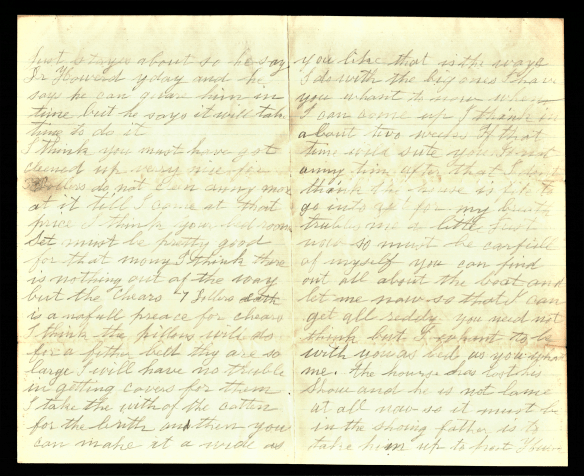 just stays about so he says
Dr Howerd yday and he
says he can quare him in
time but he says it will take
time to do it
I think you must have got
clened up very nice for
Dollers do not clen anny more
at it till I come at that
price I think your bed room
Set must be pretty good
for that mony I think there
is nothing out of the way
but the Chears 47 Dollers
is a nafull preace for chears
I think the pillows will do
for a fither bed thy are so
large I will have no truble
in getting covers for them
I take the with of the cotten
for the brith and then you
can make it a wide as
you like that is the ways
I do with the big ones I have
you whant to now when
I can come up I think in
about two weeks If that
time wold sute you if not
anny tim after that I don't
think the house is fit to
go into as for my
truble me a little Just
now so must be carfull
of myself you can find
out all about the boat and
let me now so that I can
get all reddy you need not
think but I whant to be
with you as bad as you whant
me. the hourse has lost his
Shoue and he is not lame
at all now so it must be
in the shoing father is to
take him up to host Hower